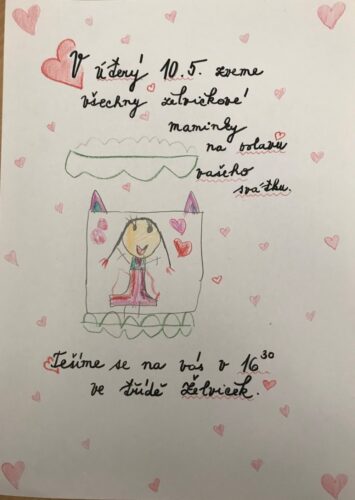 V úterý 10.5. zveme
všechny želvičkové
maminky
na oslavu
vašeho
svátku.
Těšíme se na vás v 16³⁰
ve třídě Želviček.